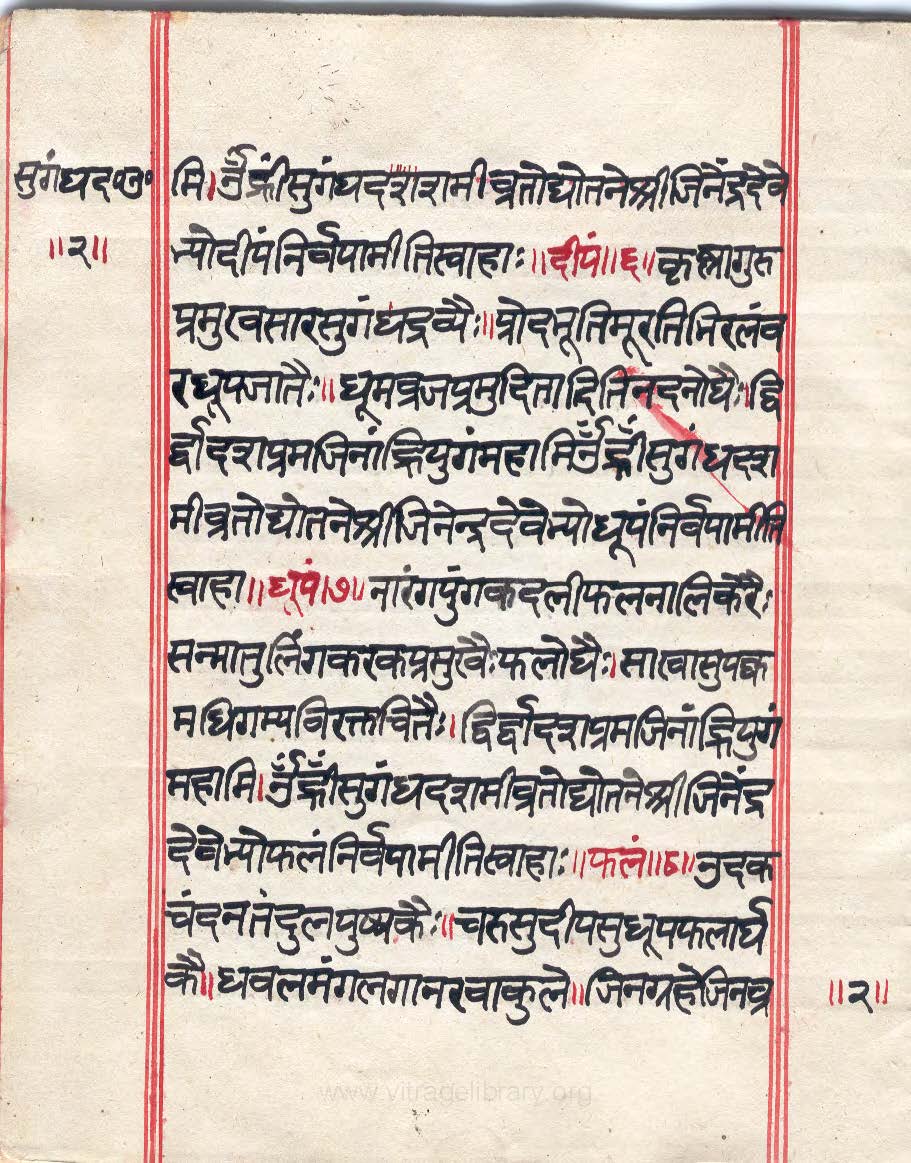 सुगंधद॰पू॰ मि।ॐह्रींसुगंधदशशमीव्रतोद्योतनेश्रीजिनेंद्रदेवे
॥२॥ भ्योदीपंनिर्वपामीतिस्वाहाः॥दीपं॥६॥कृष्णागुरु
प्रमुखसारसुगंधद्रव्यैः॥प्रोदभूतिमूरतिभिरलंव
रधूपजातैः॥धूमव्रजप्रमुदितादितिनदनोघैः।द्वि
र्द्वादशप्रमजिनांह्रियुगंमहामिॐह्रींसुगंधदश
मीव्रतोद्योतनेश्रीजिनेन्द्रदेवेभ्योधूपंनिर्वपामीति
स्वाहा॥धूपं।७॥नारंगपुंगकदलीफलनालिकेरैः
सन्मातुलिंगकरकप्रमुखैःफलोघैः।साखासुपक्व
मधिगम्यविरक्तचितैः।द्विर्द्वादशप्रमजिनांह्रियुगं
महामि।ॐह्रींसुगंधदशमीव्रतोद्योतनेश्रीजिनेंद्र
देवेभ्योफलंनिर्वपामीतिस्वाहाः॥फलं॥८॥नुदक
चंदनतंदुलपुष्पकैः॥चरुसुदीपसुधूपफलार्घ
कै॥धवलमंगलगानरवाकुले॥जिनग्रहेजिनव्र
॥२॥
www.vitradelibrary.org